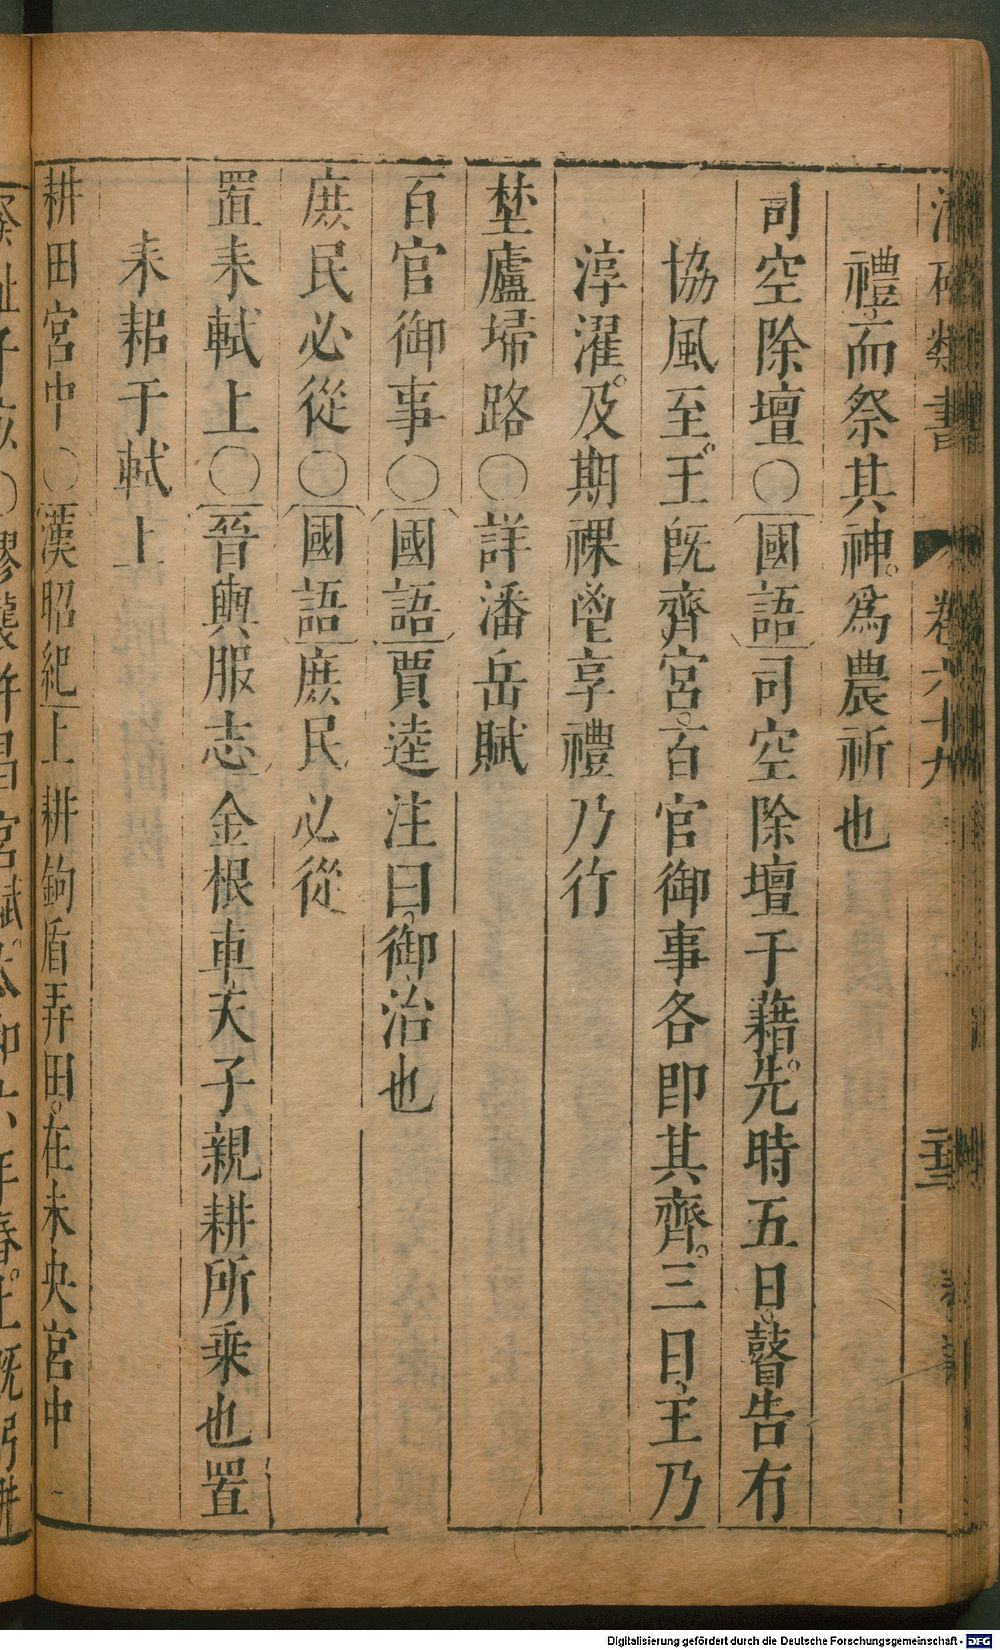 潛確類書 卷六十九
禮而祭其神。爲農祈也
司空除壇〇國語司空除壇于藉。先時五日。瞽告有
協風至。王旣齊宮。百官御事各卽其齊。三日、王乃
淳濯。及期祼鬯享禮乃行
埜廬埽路〇詳潘岳賦
百官御事〇國語賈逵注曰。御治也
庶民必從〇國語庶民必從
置耒軾上〇晉輿服志金根車天子親耕所乗也置
耒耜于軾上
耕田宮中〇漢昭紀上耕鉤盾弄田。在未央宮中
Digitalisierung gefördert durch die Deutsche Forschungsgemeinschaft - DFG